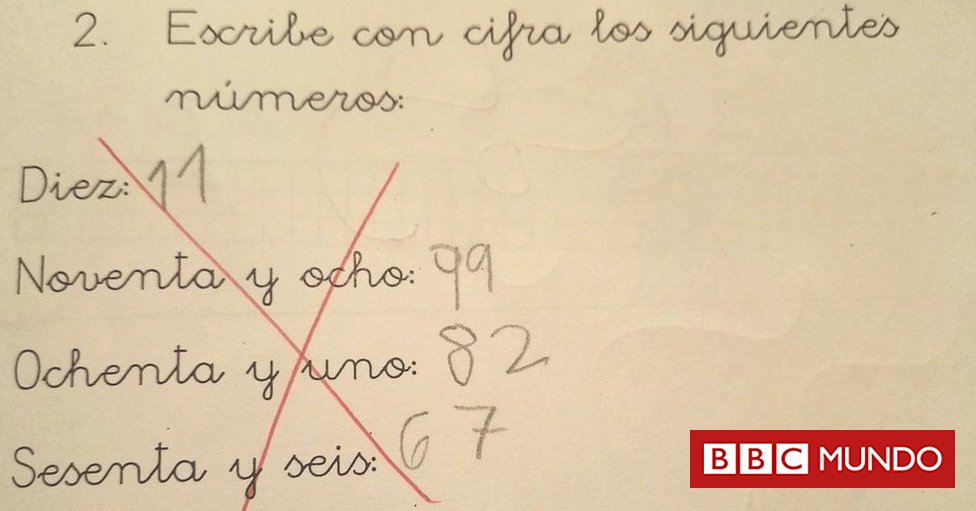 2. Escribe con cifra los siguientes
números:
Diez: 11
Noventa y ocho: 99
Ochenta y uno: 82
Sesenta y seis: 67
BBC MUNDO